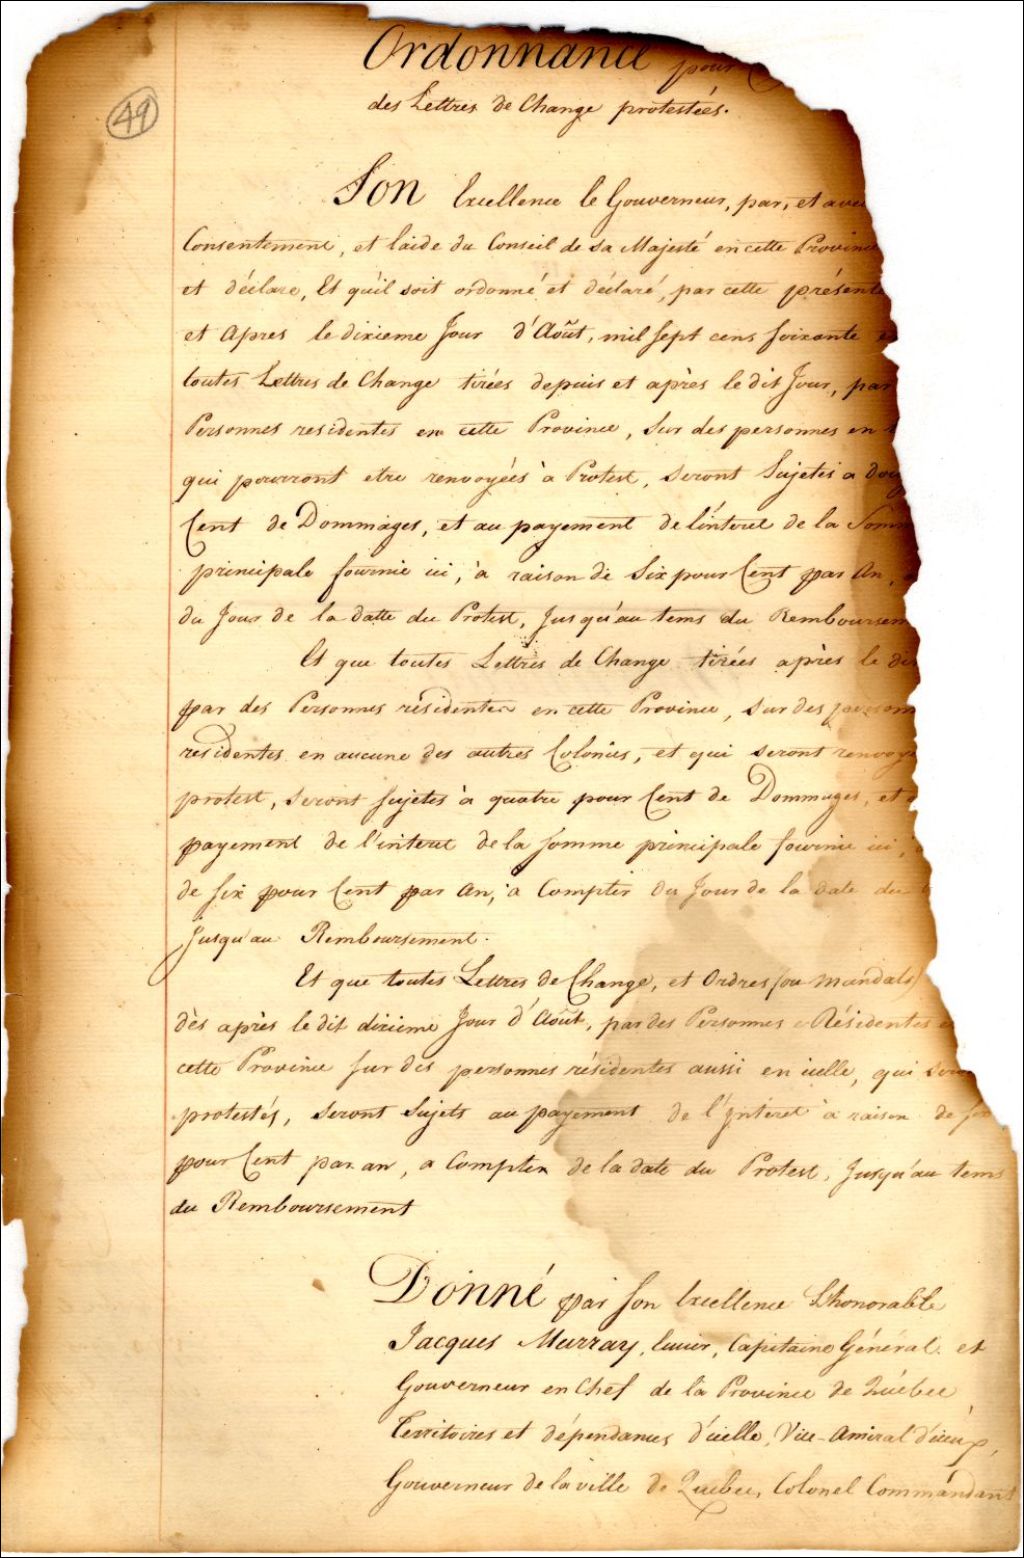 Ordonnance pour
49
des Lettres de Change protestées.
Son Excellence le Gouverneur, par, et avec
Consentement, et l'aide du Conseil de sa Majesté en cette Province
et déclare, Et qu'il soit ordonné et déclaré, par cette présente
et Apres le dixieme Jour d'Août, mil sept cens soixante
toutes Lettres de Change tirées depuis et après le dit Jour, par
Personnes residentes en cette Province, sur des personnes en
qui pourront etre renvoyées à Protest, seront Sujetes a
Cent de Dommages, et au payement de l'interet de la Som
principale fournie ici, à raison de Six pour Cent par An,
du Jour de la datte du Protest, Jusqu'au tems du Remboursem
Et que toutes Lettres de Change tirées après le dit
par des Personnes résidentes en cette Province, sur des person
residentes en aucune des autres Colonies, et qui seront renvoyé
protest, seront sujetes à quatre pour Cent de Dommages, et
payement de l'interet de la somme principale fournie ici,
de six pour Cent par An, à Compter du Jour de la date du
jusqu'au Remboursement.
Et que toutes Lettres de Change, et Ordres (ou Mandats)
dès après le dit dixieme Jour d'Août, par des Personnes Résidentes
cette Province sur des personnes résidentes aussi en icelle, qui seront
protestés, seront Sujets au payement de l'Interet à raison de six
pour Cent par an, a Compter de la date du Protest, Jusqu'au tems
du Remboursement
Donné par Son Excellence L'honorable
Jacques Murray, Ecuier, Capitaine Général et
Gouverneur en Chef de la Province de Québec
Territoires et dépendances d'icelle, Vice-Amiral d'iceux,
Gouverneur de la ville de Quebec, Colonel Commandant